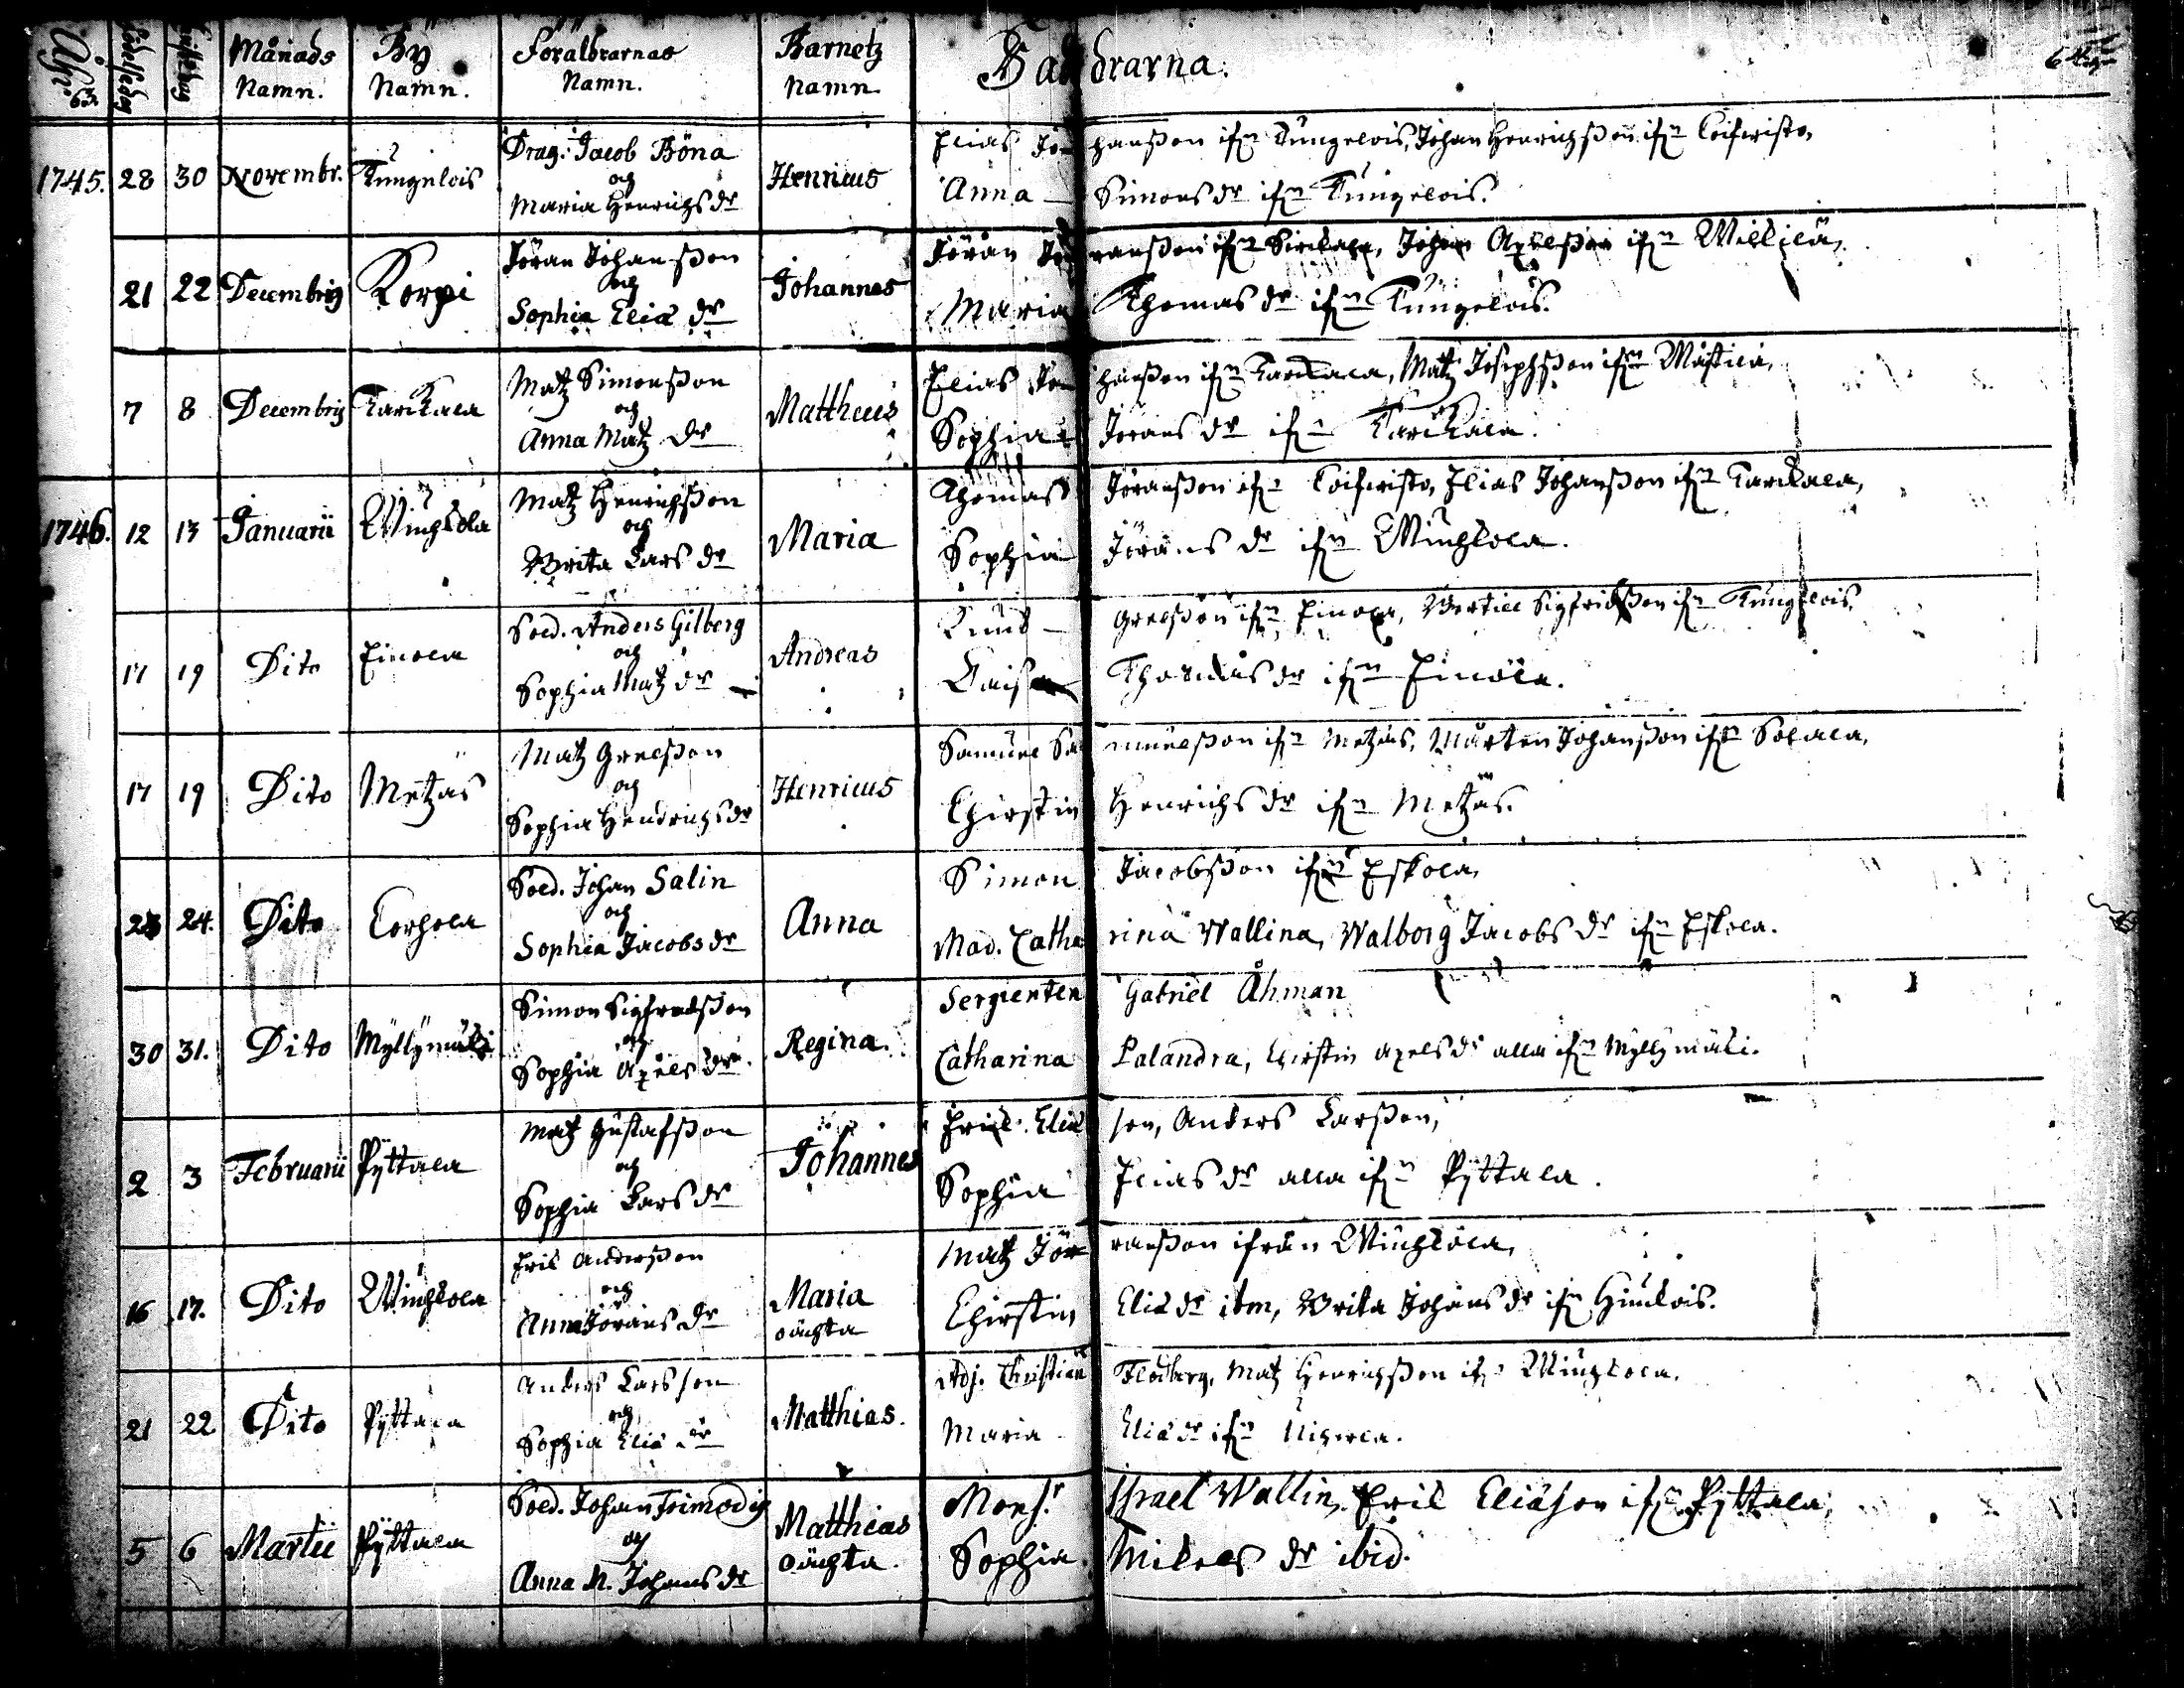 Åhr
Födelsedag
Månads Namn.
By Namn.
Föräldrarnas Namn.
Barnetz Namn
Faddrarna.
1745. 28 30 Novembr. Kungelois Drag. Jacob Böna och Maria Henrichs dr Henricus Elias Johansson ifrn Kungelois, Johan Henrichsson ifrn Loifwisto,
Anna Simons dr ifrn Kungelois.
21 22 Decembris Korpi Jöran Johansson och Sophia Eliæ dr Johannes Jöran Jöransson ifrn Johan Axelsson ifrn Willilä,
Maria Thomas dr ifrn Kungelois.
7 8 Decembris Karikala Matz Simonsson och Anna Matz dr Mattheus Elias Johansson ifrn Karikala, Matz Josephsson ifrn
Sophia Jörans dr ifrn Karikala.
1746. 12 13 Januarii Matz Henrichsson och Brita Lars dr Maria Thomas Jöransson ifrn Loifwisto, Elias Johansson ifrn Karikala,
Sophia Jörans dr ifrn
17 19 Dito Einola Sold. Anders Gilberg och Sophia Matz dr Andreas Knut Grelsson ifrn Einola, Bertill Sigfridsson ifrn Kungelois,
Caisa Thomas dr ifrn Einola.
17 19 Dito Metzäs Matz Grelsson och Sophia Hendrichs dr Henricus Samuel Samuelsson ifrn Metzäs, Mårten Johansson ifrn
Chirstin Henrichs dr ifrn Metzäs.
23 24. Dito Sold. Johan Salin och Sophia Jacobs dr Anna Simon Jacobsson ifrn Eskola,
Mad. Catharina Wallina, Walborg Jacobs dr ifrn Eskola.
30 31. Dito Myllymäki Simon Sigfredsson och Sophia Axels dr Regina Sergienten Gabriel Åhman
Catharina Palandra, Kirstin Axels dr alla ifrn Myllymäki.
2 3 Februarii Pyttala Matz Gustafsson och Sophia Lars dr Johannes Erik Eliæson, Anders Larsson,
Sophia Elias dr alla ifrn Pyttala.
16 17. Dito Erik Andersson och Anna Jörans dr Maria oächta Matz Jöransson ifrån
Chirstin Eliæ dr ibm, Brita Johans dr ifrn
21 22 Dito Pyttala Anders Larsson och Sophia Eliæ dr Matthias. Adj. Christian Flodberg, Matz Henrichsson ifrn
Maria Eliæ dr ifrn
5 6 Martii Pyttala Sold. Johan Frimodig och Anna N. Johans dr Matthias oächta. Mons.r Israel Wallin, Erik Eliæson ifrn Pyttala,
Sophia Mikels dr ibid.